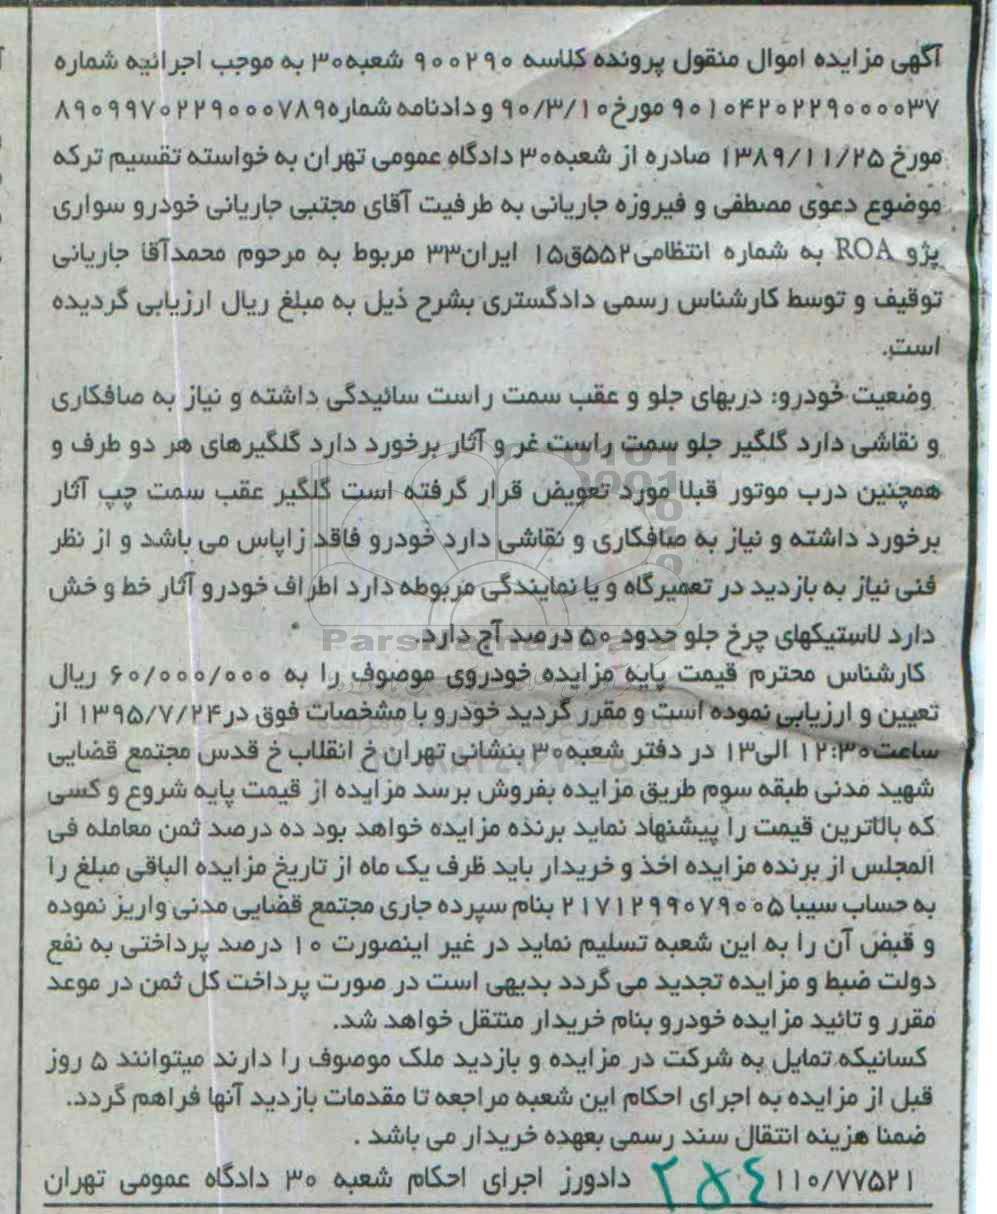 آگهی مزایده اموال منقول پرونده کلاسه ۹۰۰۲۹۰ شعبه۳۰ به موجب اجرائیه شماره
۹۰۱۰۴۲۰۲۲۹۰۰۰۰۳۷ مورخ۹۰/۳/۱۰ و دادنامه شماره۸۹۰۹۹۷۰۲۲۹۰۰۰۷۸۹
مورخ ۱۳۸۹/۱۱/۲۵ صادره از شعبه۳۰ دادگاه عمومی تهران به خواسته تقسیم ترکه
موضوع دعوی مصطفی و فیروزه جاریانی به طرفیت آقای مجتبی جاریانی خودرو سواری
پژو ROA به شماره انتظامی۵۵۲ق۱۵ ایران۳۳ مربوط به مرحوم محمدآقا جاریانی
توقیف و توسط کارشناس رسمی دادگستری بشرح ذیل به مبلغ ریال ارزیابی گردیده
است.
وضعیت خودرو: دربهای جلو و عقب سمت راست سائیدگی داشته و نیاز به صافکاری
و نقاشی دارد گلگیر جلو سمت راست غر و آثار برخورد دارد گلگیرهای هر دو طرف و
همچنین درب موتور قبلا مورد تعویض قرار گرفته است گلگیر عقب سمت چپ آثار
برخورد داشته و نیاز به صافکاری و نقاشی دارد خودرو فاقد زاپاس می باشد و از نظر
فنی نیاز به بازدید در تعمیرگاه و یا نمایندگی مربوطه دارد اطراف خودرو آثار خط و خش
دارد لاستیکهای چرخ جلو حدود ۵۰ درصد آج دارد.
ParsNamadData
کارشناس محترم قیمت پایه مزایده خودروی موصوف را به ۶۰/۰۰۰/۰۰۰ ریال
تعیین و ارزیابی نموده است و مقرر گردید خودرو با مشخصات فوق در۱۳۹۵/۷/۲۴ از
ساعت۱۲:۳۰ الی۱۳ در دفتر شعبه۳۰ بنشانی تهران خ انقلاب خ قدس مجتمع قضایی
شهید مدنی طبقه سوم طریق مزایده بفروش برسد مزایده از قیمت پایه شروع و کسی
که بالاترین قیمت را پیشنهاد نماید برنده مزایده خواهد بود ده درصد ثمن معامله فی
المجلس از برنده مزایده اخذ و خریدار باید ظرف یک ماه از تاریخ مزایده الباقی مبلغ را
به حساب سیبا ۲۱۷۱۲۹۹۰۷۹۰۰۵ بنام سپرده جاری مجتمع قضایی مدنی واریز نموده
و قبض آن را به این شعبه تسلیم نماید در غیر اینصورت ۱۰ درصد پرداختی به نفع
دولت ضبط و مزایده تجدید می گردد بدیهی است در صورت پرداخت کل ثمن در موعد
مقرر و تائید مزایده خودرو بنام خریدار منتقل خواهد شد.
کسانیکه تمایل به شرکت در مزایده و بازدید ملک موصوف را دارند میتوانند ۵ روز
قبل از مزایده به اجرای احکام این شعبه مراجعه تا مقدمات بازدید آنها فراهم گردد.
ضمنا هزینه انتقال سند رسمی بعهده خریدار می باشد .
۱۱۰/۷۷۵۲۱ ۲۵۴ دادورز اجرای احکام شعبه ۳۰ دادگاه عمومی تهران